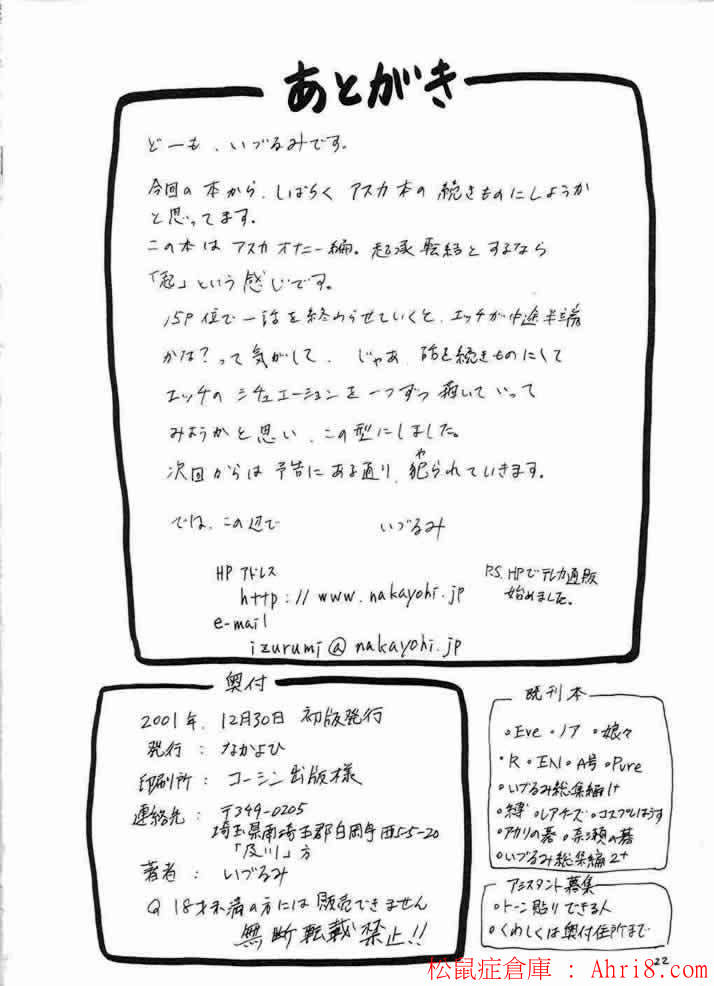 あとがき
どーも、いづるみです。
今回の本から、しばらく アスカ本の 続きものにしようか
と思ってます。
この本は アスカオナニー編。起承転結とするなら
「起」という感じです。
15P位で一話を終わらせていくと、エッチが中途半端
かな?って気がして、じゃあ、話を続きものにして
エッチの シチュエーションを一つずつ 描いていって
みようかと思い、この型にしました。
次回からは 予告にある通り、犯られていきます。
や
では、この辺で いづるみ
HP アドレス
http://www.nakayohi.jp
P.S. HPでテレカ通販
始めました。
e-mail
izurumi@nakayohi.jp
奥付
2001年、12月30日 初版発行
発行 : なかよひ
印刷所 : コーシン出版様
連絡先 : 〒349-0205
埼玉県南埼玉郡白岡町西5-5-20
「及川」方
著者 : いづるみ
18才未満の方には販売できません
無断転載禁止!!
既刊本
・Eve ・ノア ・娘々
・R ・EN ・A号 ・Pure
・いづるみ総集編1+
・縛 ・レアチーズ ・コスプレはうす
・アカリの碁 ・奈瀬の碁
・いづるみ総集編2+
アシスタント募集
・トーン貼りできる人
・くわしくは奥付住所まで
22
松鼠症倉庫 : Ahri8.com